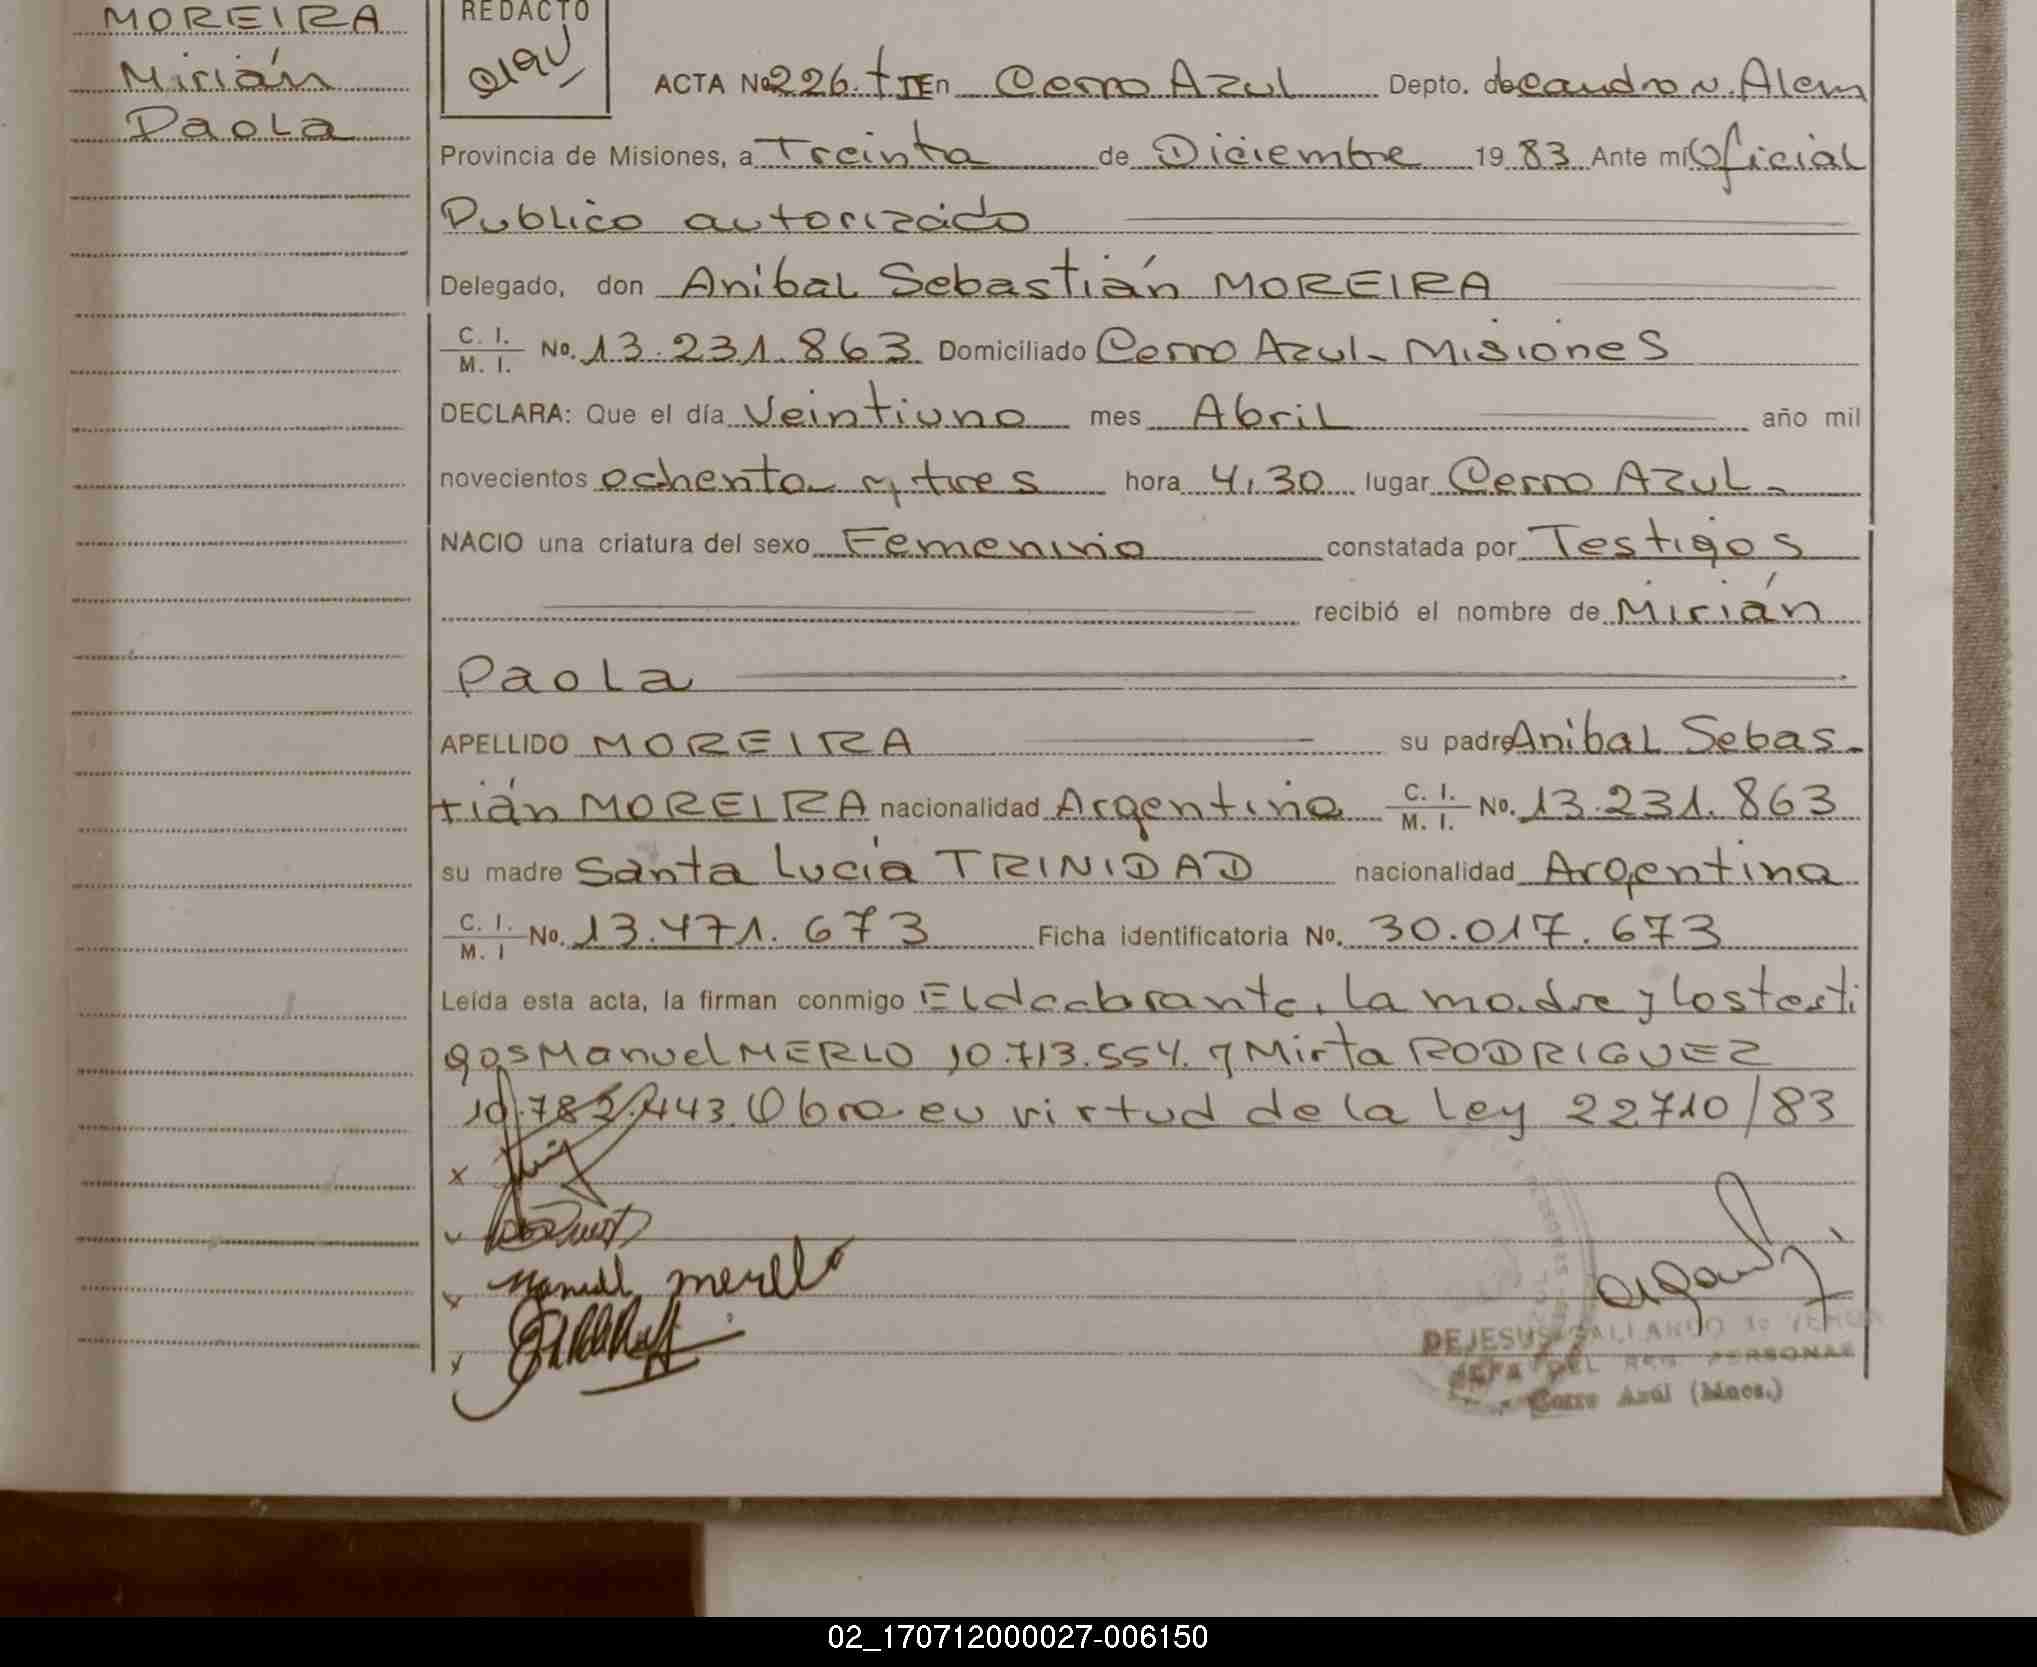 MOREIRA
Mirián
Paola
REDACTO
ACTA No 226. tIE En Cerro Azul Depto. de Leandro N. Alem
Provincia de Misiones, a Treinta de Diciembre 19 83 Ante mi Oficial
Publico autorizado
Delegado, don Anibal Sebastián MOREIRA
C. I.
M. I. No. 13.231.863 Domiciliado Cerro Azul - Misiones
DECLARA: Que el día Veintiuno mes Abril año mil
novecientos ochenta y tres hora 4,30 lugar Cerro Azul -
NACIO una criatura del sexo Femenino constatada por Testigos
recibió el nombre de Mirián
Paola
APELLIDO MOREIRA su padre Anibal Sebas-
tián MOREIRA nacionalidad Argentina C. I.
M. I. No. 13.231.863
su madre Santa Lucía TRINIDAD nacionalidad Argentina
C. I.
M. I No. 13.471.673 Ficha identificatoria No. 30.017.673
Leída esta acta, la firman conmigo El declarante, la madre y los testi
gos Manuel MERLO 10.713.554. y Mirta RODRIGUEZ
10.782.443. Obra en virtud de la Ley 22710/83
Manuel Merllo
DEJESUS GALLARDO
JEFA DEL REG. PERSONAS
Cerro Azul (Mnes.)
02_170712000027-006150